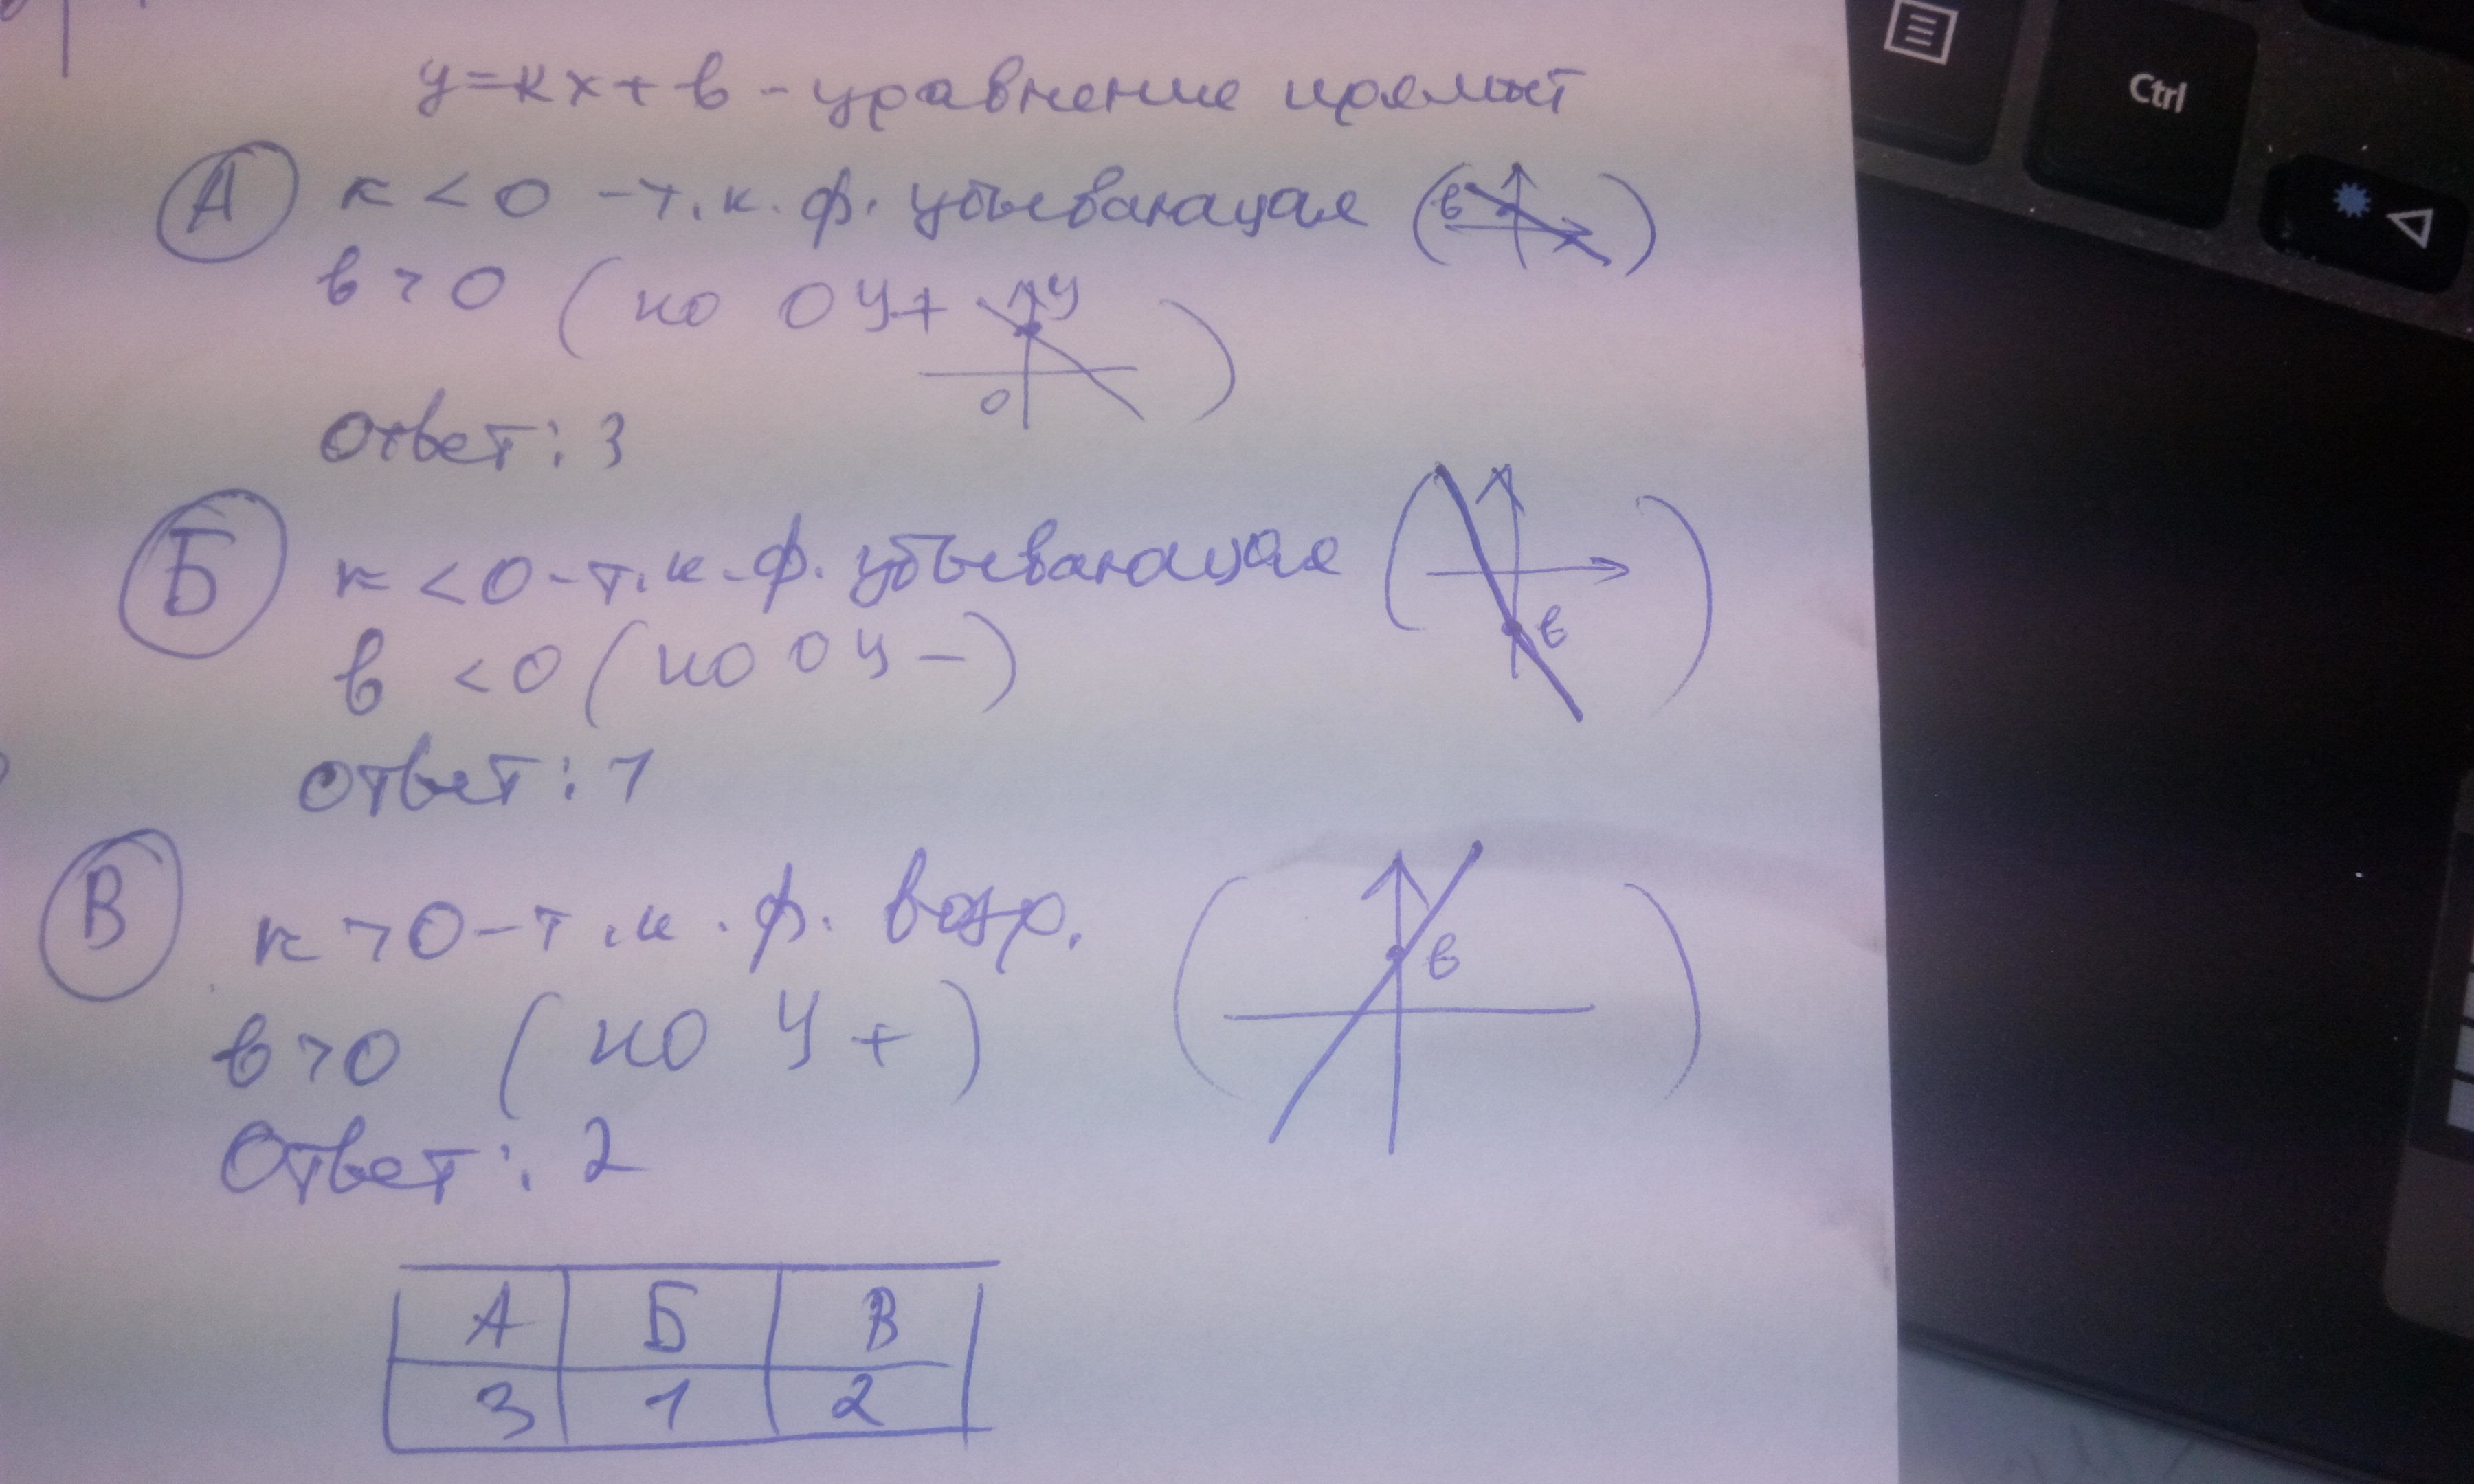 y=кx+в - уравнение прямых
А к < 0 - т.к. ф. убывающая ( в )
в > 0 ( по ОУ+ У 0 )
ответ: 3
Б к < 0 - т.к. ф. убывающая ( в )
в < 0 ( по ОУ - )
ответ: 1
В к > 0 - т.к. ф. возр. ( в )
в > 0 ( по У + )
Ответ: 2
А Б В
3 1 2
Ctrl